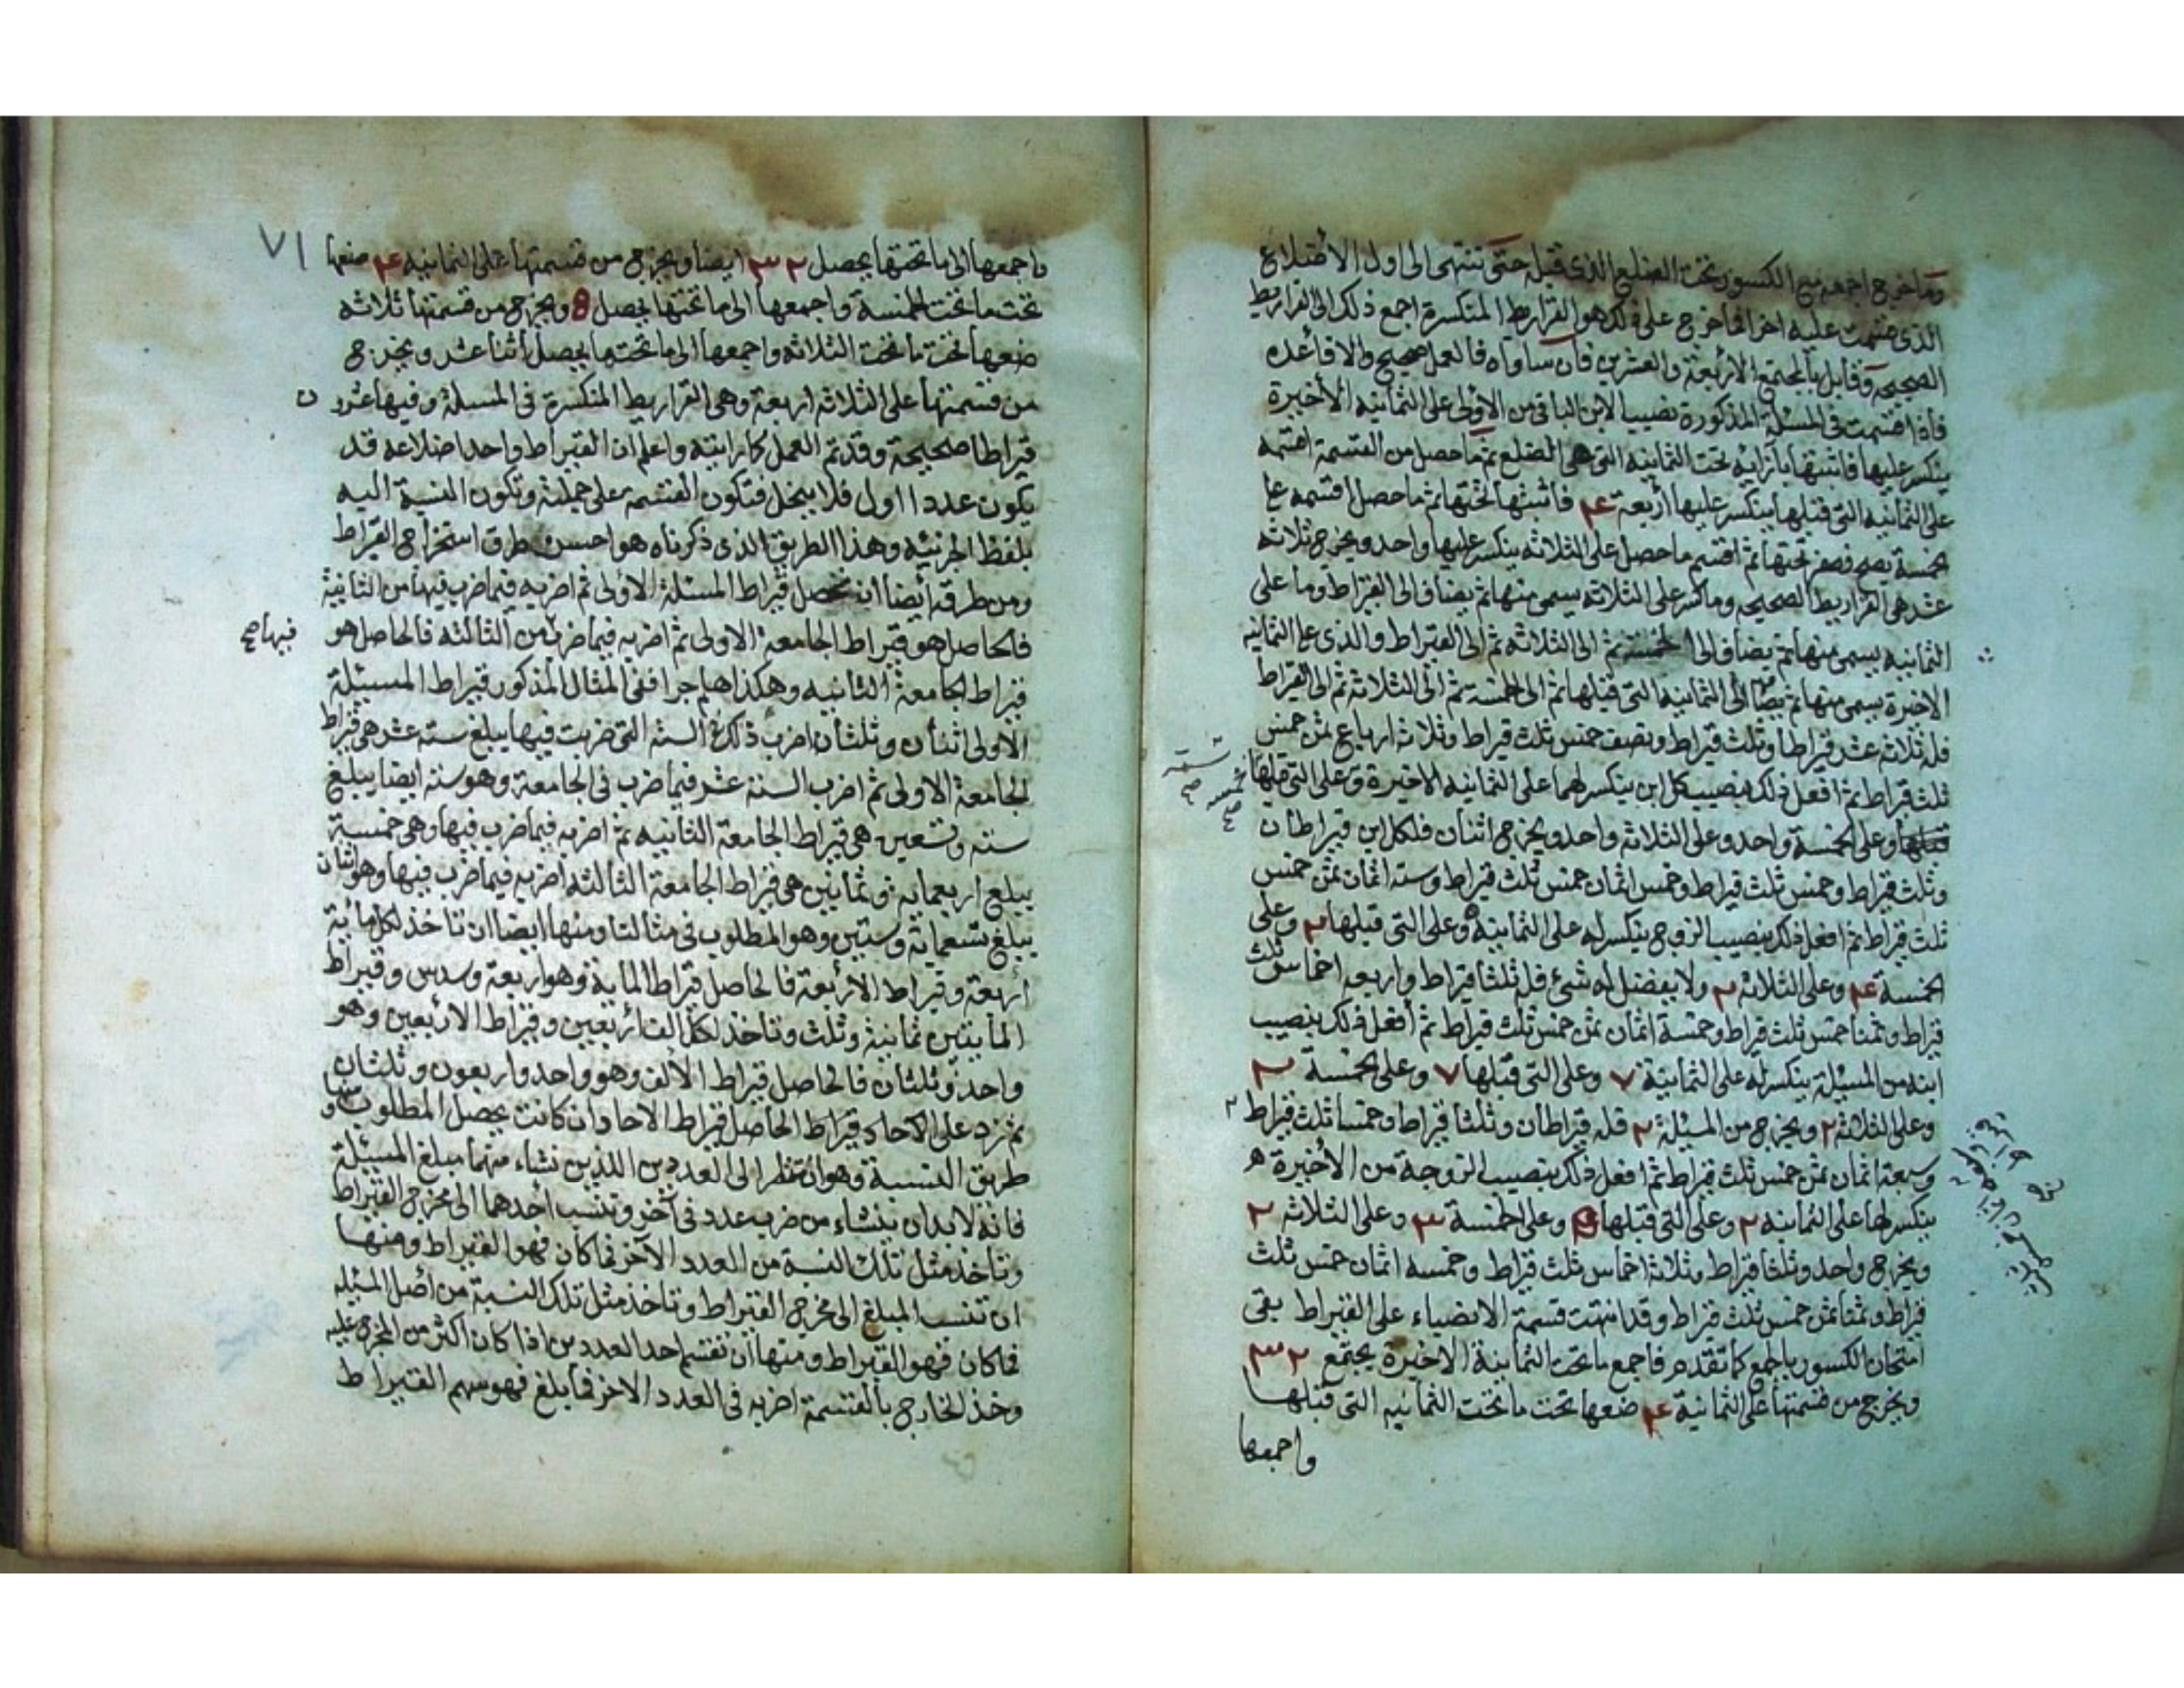 وما خرج اجمعه مع الكسور تحت الضلع الذى قبله حتى تنتهى الى اول الاضلاع
الذى قسمت عليه اخرا فما خرج على ذلك هو القراريط المنكسرة اجمع ذلك الى القراريط
الصحيحه وقابل بالمجتمع الاربعة والعشرين فان ساواه فالعمل صحيح والا فأعده
فأذا قسمت فى المسئلة المذكورة نصيب الابن الباقى من الاولى على الثمانيه الأخيرة
ينكسر عليها فاثبتها بأزائه تحت الثمانيه التى هى الضلع ثم ما حصل من القسمة اقسمه
على الثمانيه التى قبلها ينكسر عليها أربعة ٤ فاثبتها تحتها ثم ما حصل اقسمه على
خمسة يصح فصفر تحتها ثم اقسم ما حصل على الثلاثه ينكسر عليها واحد ويخرج ثلاثه
عشر هى القراريط الصحيحه وما كسر على الثلاثه يسمى منها ثم يضاف الى القيراط وما على
الثمانيه يسمى منها ثم يضاف الى الخمسة ثم الى الثلاثه ثم الى القيراط والذى على الثمانيه
الاخيرة يسمى منها ثم يضاف الى الثمانيه التى قبلها ثم الى الخمسة ثم الى الثلاثة ثم الى القيراط
فله ثلاثه عشر قيراطا وثلث قيراط ونصف خمس ثلث قيراط وثلاثه ارباع ثمن خمس
ثلث قيراط ثم افعل ذلك بنصيب كل ابن ينكسر لهما على الثمانيه الاخيرة وعلى التى قبلها
قبلها وعلى الخمسة واحد وعلى الثلاثه واحد ويخرج اثنان فلكل ابن قيراطان
وثلث قيراط وخمس ثلث قيراط وخمس اثمان خمس ثلث قيراط وسته اثمان ثمن خمس
ثلث قيراط ثم افعل ذلك بنصيب الزوج ينكسر له على الثمانية ٥ وعلى التى قبلها ٢ وعلى
الخمسة ٤ وعلى الثلاثه ٢ ولا يفضل له شئ فله ثلثا قيراط واربعه اخماس ثلث
قيراط وثمنا خمس ثلث قيراط وخمسة اثمان ثمن خمس ثلث قيراط ثم أفعل ذلك بنصيب
ابنه من المسئلة ينكسر له على الثمانية ٧ وعلى التى قبلها ٧ وعلى الخمسة ٢
وعلى الثلاثه ٢ ويخرج من المسئلة ٢ فله قيراطان وثلثا قيراط وخمسا ثلث قيراط ٢
وسبعة اثمان ثمن خمس ثلث قيراط ثم افعل ذلك بنصيب الزوجة من الأخيرة
ينكسر لها على الثمانيه ٢ وعلى التى قبلها ٥ وعلى الخمسة ٣ وعلى الثلاثه ٢
ويخرج واحد وثلثا قيراط وثلاثة اخماس ثلث قيراط وخمسه اثمان خمس ثلث
قيراط وثمنا ثمن خمس ثلث قيراط وقد انتهت قسمة الانصباء على القيراط بقى
امتحان الكسور بالجمع كما تقدم فاجمع ما تحت الثمانية الاخيرة يجتمع ٣٢
ويخرج من قسمتها على الثمانية ٤ ضعها تحت ما تحت الثمانيه التى قبلها
واجمعها
٧١
واجمعها الى ما تحتها يحصل ٣٢ ايضا ويخرج من قسمتها على الثمانيه ٤ ضعها
تحت ما تحت الخمسة واجمعها الى ما تحتها يحصل ويخرج من قسمتها ثلاثه
ضعها تحت ما تحت الثلاثه واجمعها الى ما تحتها يحصل أثنا عشر ويخرج
من قسمتها على الثلاثه اربعة وهى القراريط المنكسرة فى المسئلة وفيها عشرون
قيراطا صحيحة وقد تم العمل كما رايته واعلم ان القيراط واحد اضلاعه قد
يكون عددا اول فلا ينحل فتكون القسمه على جملته وتكون النسبة اليه
بلفظ الجزئيه وهذا الطريق الذى ذكرناه هو احسن طرق استخراج القيراط
ومن طرقه أيضا ان تحصل قيراط المسئلة الاولى ثم اضربه فيما ضرب فيها من الثانية
فالحاصل هو قيراط الجامعة الاولى ثم اضربه فيما ضرب من الثالثه فالحاصل هو
فيها صح
قيراط الجامعة الثانيه وهكذا هلم جرا ففى المثال المذكور قيراط المسئلة
الاولى اثنان وثلثان اضرب ذلك فى السته التى ضربت فيها يبلغ سته عشر هى قيراط
الجامعة الاولى ثم اضرب الستة عشر فيما ضرب فى الجامعة وهو سته ايضا يبلغ
سته وتسعين هى قيراط الجامعة الثانيه ثم اضربه فيما ضرب فيها وهى خمسة
يبلغ اربعمايه وثمانين هى قيراط الجامعة الثالثه اضربه فيما ضرب فيها وهو اثنان
يبلغ تسعماية وستين وهو المطلوب فى مثالنا ومنها ايضا ان تاخذ لكل ماية
أربعة وقيراط الأربعة فالحاصل قيراط الماية وهو اربعة وسدس وقيراط
المأيتين ثمانية وثلث وتاخذ لكل الف أربعين وقيراط الاربعين وهو
واحد وثلثان فالحاصل قيراط الألف وهو واحد واربعون وثلثان
ثم زد على الاحاد قيراط الحاصل قيراط الاحاد ان كانت يحصل المطلوب ومنها
طريق النسبة وهو ان تنظر الى العددين اللذين نشاء منهما مبلغ المسئلة
فانه لابد ان ينشاء من ضرب عدد فى آخر وتنسب احدهما الى مخرج القيراط
وتاخذ مثل تلك النسبة من العدد الآخر فما كان فهو القيراط ومنها
ان تنسب المبلغ الى مخرج القيراط وتاخذ مثل تلك النسبة من أصل المسئله
فما كان فهو القيراط ومنها أن تقسم احد العددين اذا كان اكثر من المخرج عليه
وخذ الخارج بالقسمة اضربه فى العدد الاخر فما بلغ فهو سهم القيراط